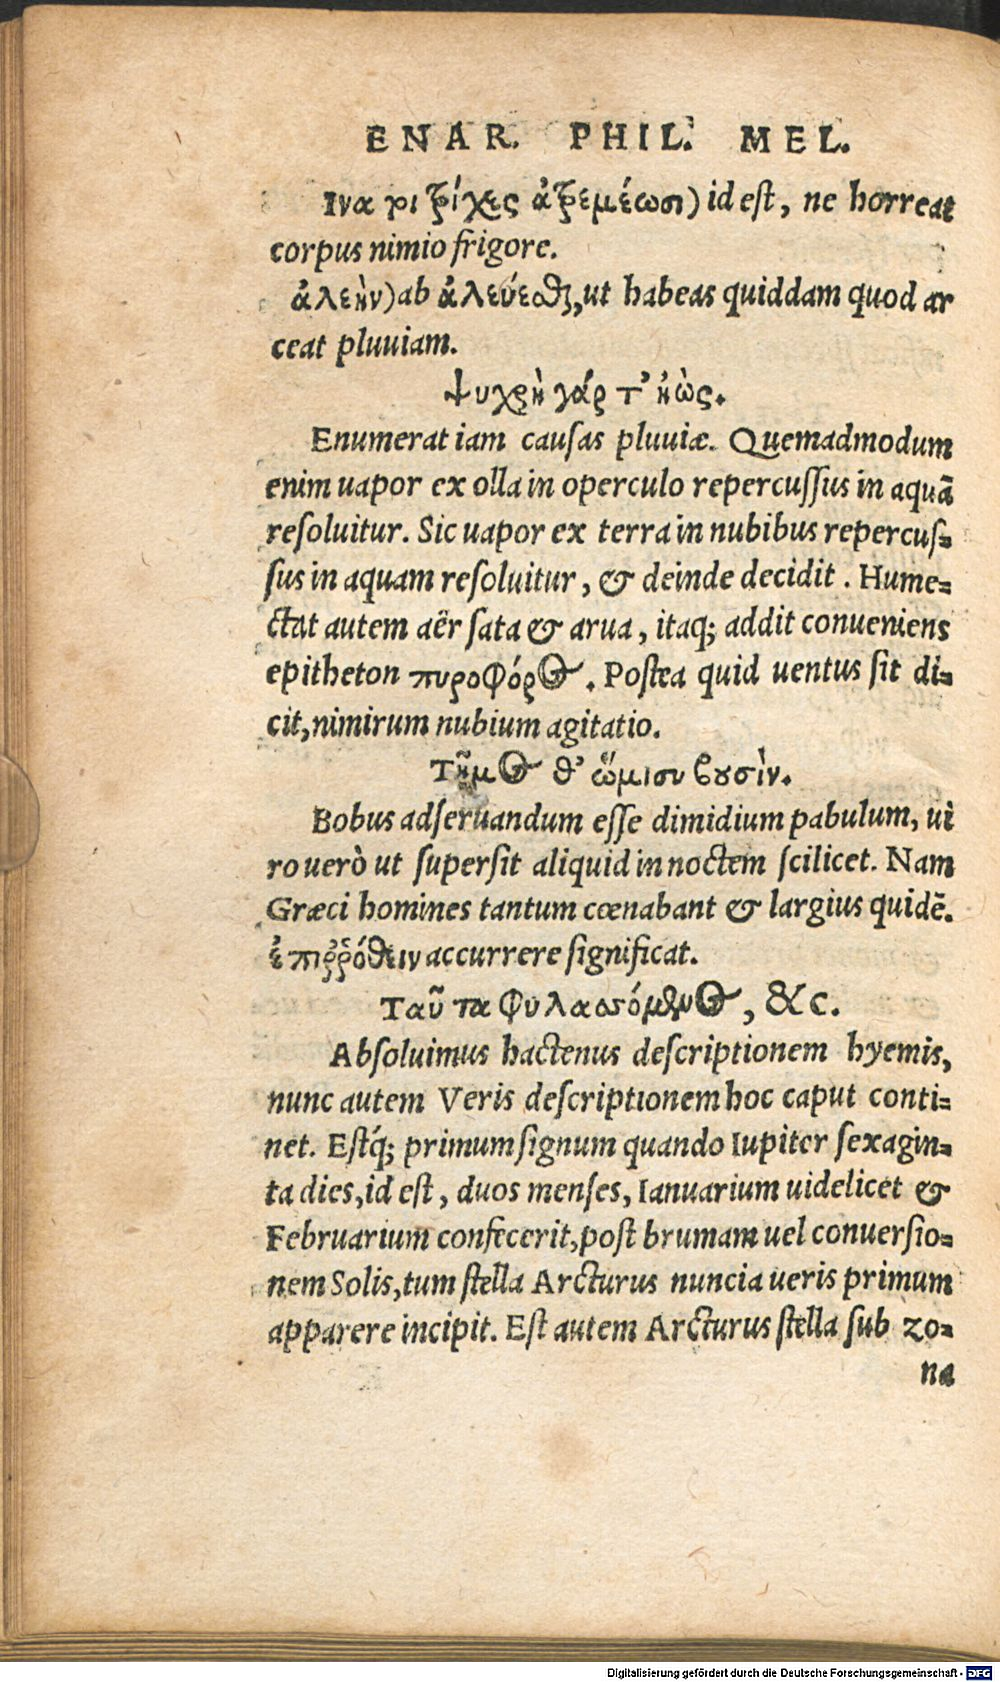 ENAR. PHIL. MEL.
Ινα ρι τρίχες ἀτρεμέωσι) id est, ne horreat
corpus nimio frigore.
ἀλεὴν) ab ἀλεύεσθαι, ut habeas quiddam quod ar
ceat pluuiam.
ψυχρὴ γάρ τ' ἠὼς.
Enumerat iam causas pluuiæ. Quemadmodum
enim uapor ex olla in operculo repercussus in aquā
resoluitur. Sic uapor ex terra in nubibus repercus=
sus in aquam resoluitur, & deinde decidit. Hume=
ctat autem aër sata & arua, itaq; addit conueniens
epitheton πυροφόρος. Postea quid uentus sit di=
cit, nimirum nubium agitatio.
Τῆμος θ' ὥμισυ βουσὶν.
Bobus adseruandum esse dimidium pabulum, ui
ro uerò ut supersit aliquid in noctem scilicet. Nam
Græci homines tantum cœnabant & largius quidē.
ἐπιῤῥόθειν accurrere significat.
Ταῦτα φυλασσόμενος, &c.
Absoluimus hactenus descriptionem hyemis,
nunc autem Veris descriptionem hoc caput conti=
net. Estq́; primum signum quando Iupiter sexagin=
ta dies, id est, duos menses, Ianuarium uidelicet &
Februarium confecerit, post brumam uel conuersio=
nem Solis, tum stella Arcturus nuncia ueris primum
apparere incipit. Est autem Arcturus stella sub zo=
na
Digitalisierung gefördert durch die Deutsche Forschungsgemeinschaft - DFG